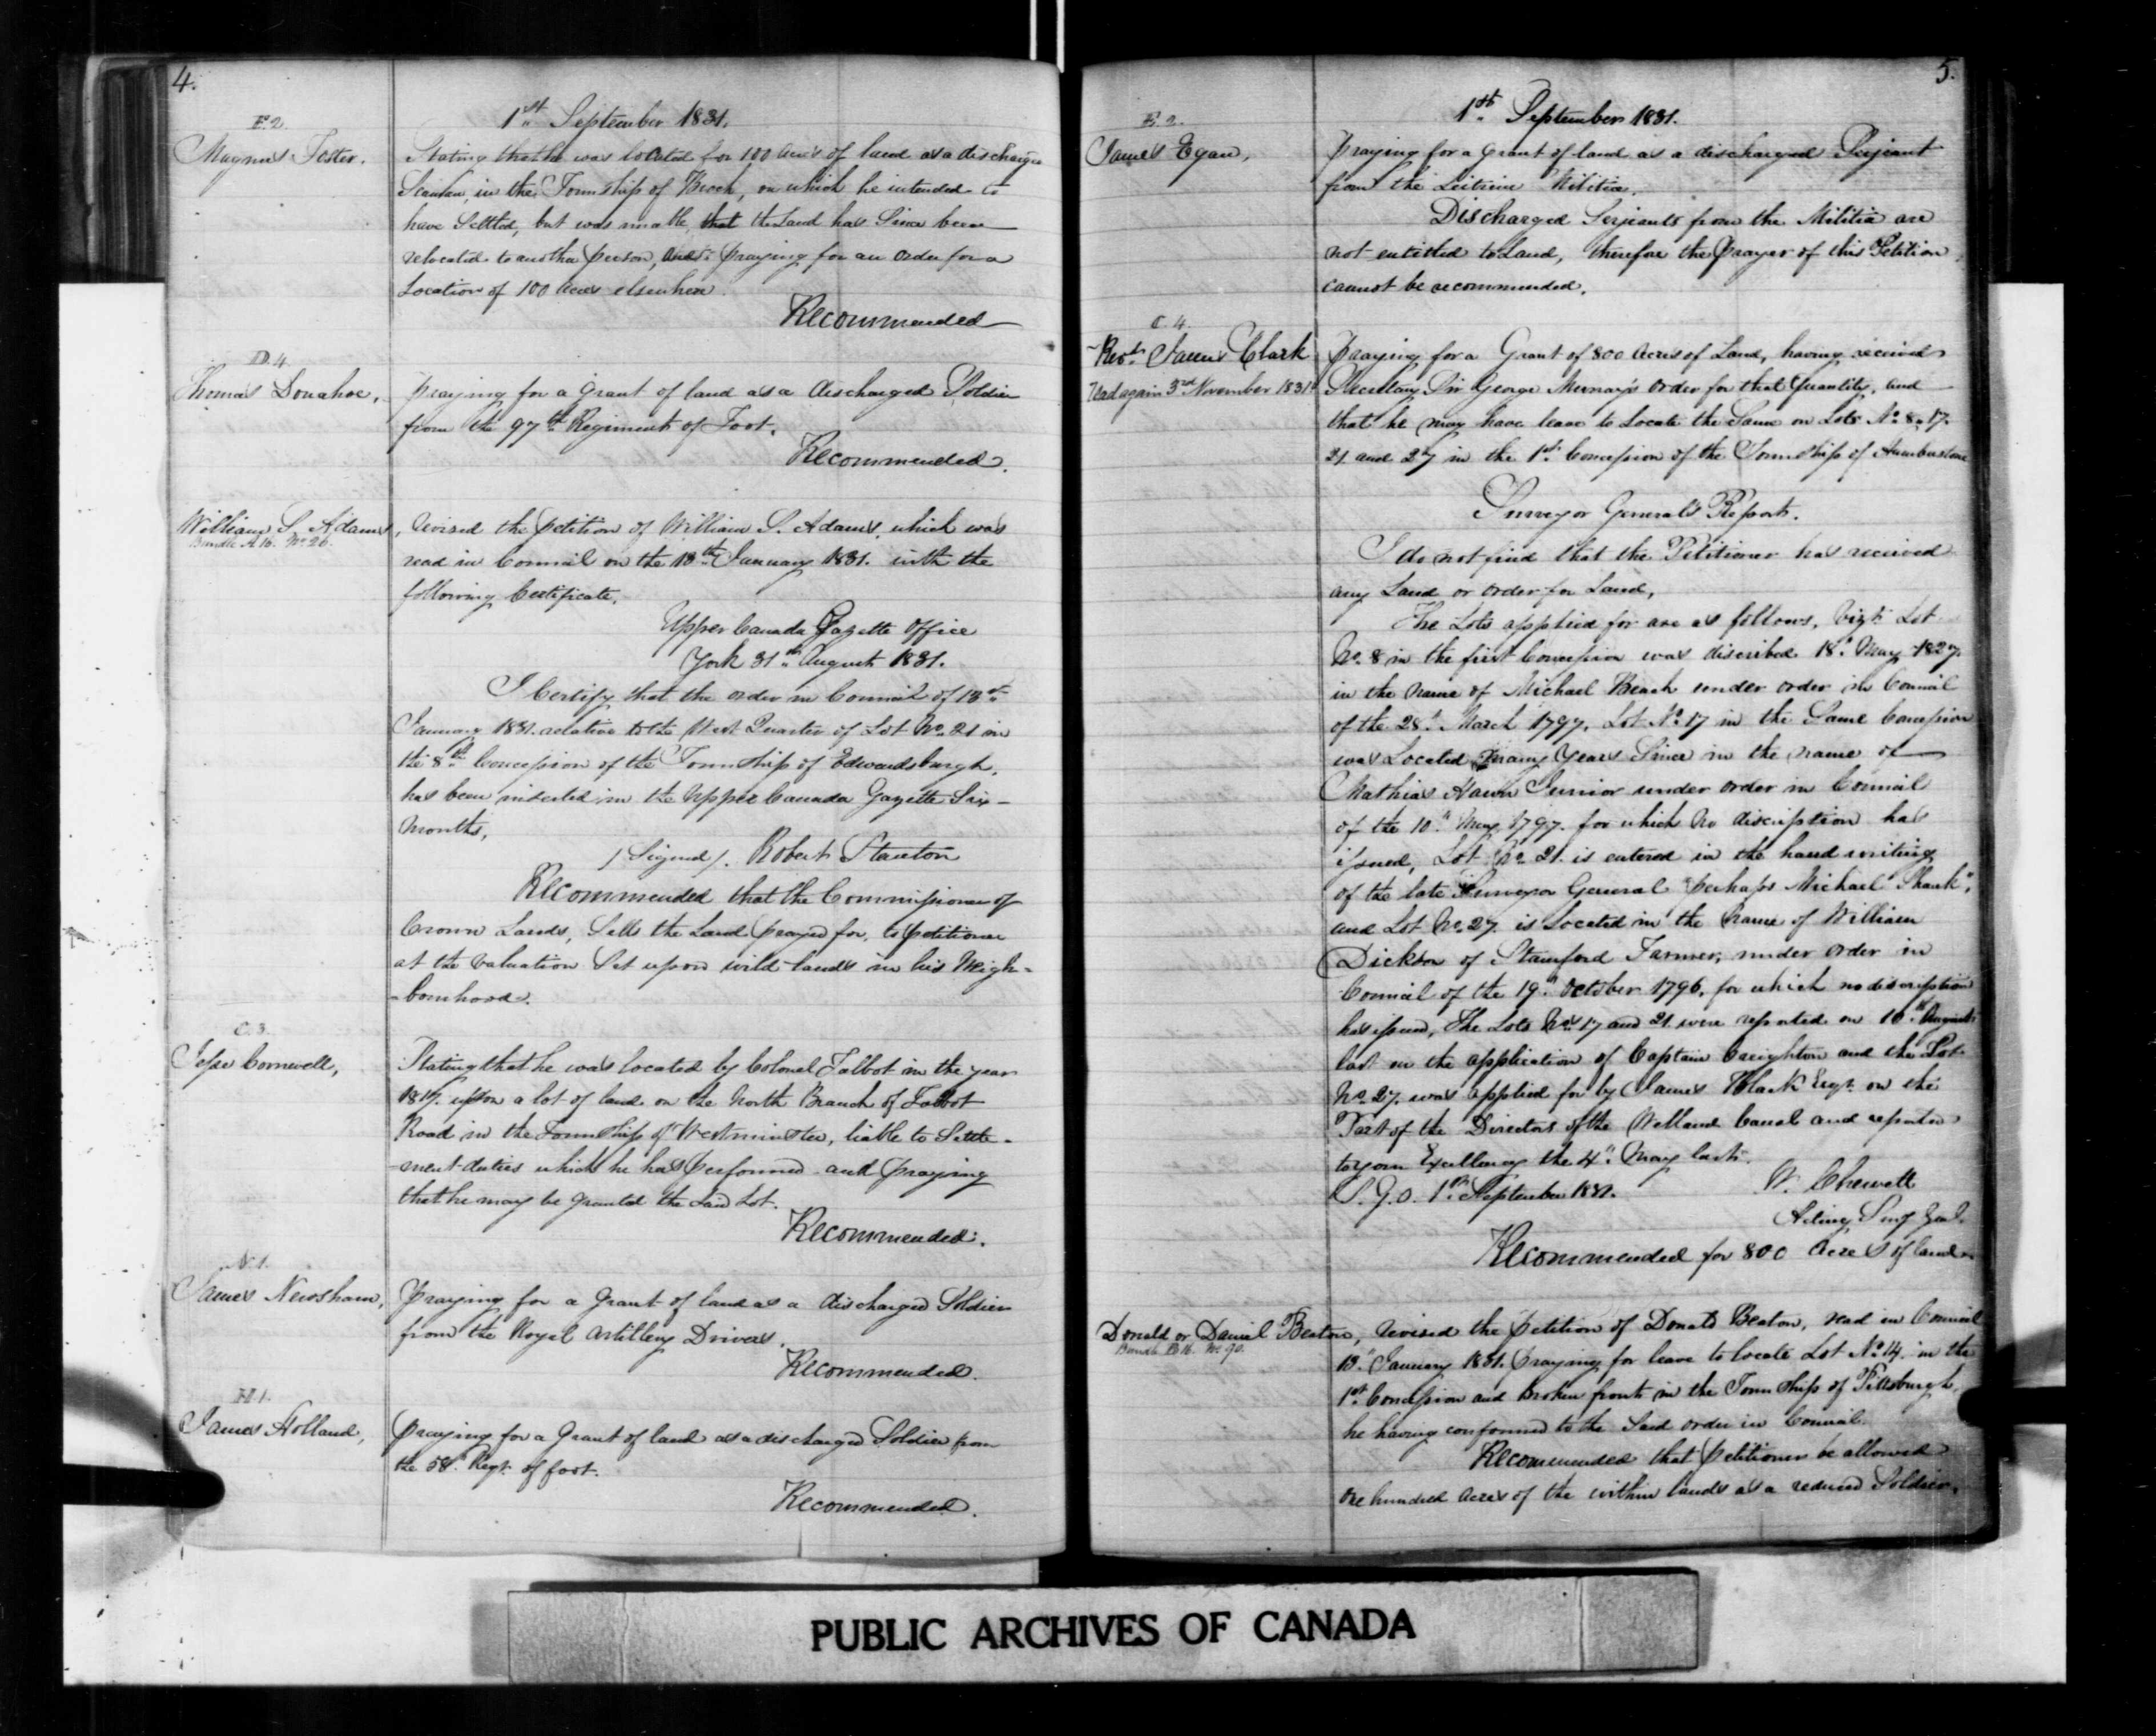 4.
1st September 1831.
F. 2.
Magnus Foster.
Stating that he was located for 100 acres of land as a discharged
Seaman, in the Township of Brock, on which he intended to
have Settled, but was unable, that the Land has Since been
relocated to another person, and praying for an order for a
Location of 100 Acres elsewhere.
Recommended
D. 4.
Thomas Donahoe,
Praying for a Grant of land as a discharged Soldier
from the 97th Regiment of Foot.
Recommended.
William S. Adams,
Bundle A 16. No. 26.
revised the petition of William S. Adams, which was
read in Council on the 13th January 1831. with the
following Certificate.
Upper Canada Gazette Office
York 31st August 1831.
I Certify that the order in Council of 13th
January 1831. relative to the West Quarter of Lot No. 21 in
the 8th Concession of the Township of Edwardsburgh,
has been inserted in the Upper Canada Gazette Six
Months,
/Signed/. Robert Stanton
Recommended that the Commissioner of
Crown Lands, Sells the Land prayed for, to petitioner
at the valuation Set upon wild lands in his Neigh=
=bourhood.
C. 3.
Jesse Cornwell,
Stating that he was located by Colonel Talbot in the year
1817. upon a lot of land on the North Branch of Talbot
Road in the Township of Westminster, liable to Settle-
-ment duties which he has performed and praying
that he may be granted the Said Lot.
Recommended.
N. 1.
James Newsham,
Praying for a Grant of land as a discharged Soldier
from the Royal Artillery Drivers.
Recommended.
H. 1.
James Holland,
Praying for a Grant of land as a discharged Soldier from
the 58th Regt. of foot.
Recommended.
5.
1st September 1831.
E. 2.
James Egan,
Praying for a Grant of land as a discharged Serjeant
from the Leitrim Militia.
Discharged Serjeants from the Militia are
not entitled to Land, therefore the prayer of this Petition
cannot be recommended.
C. 4.
Revd. James Clark
Read again 3rd November 1831
Praying for a Grant of 800 Acres of Land, having received
Secretary Sir George Murray's order for that Quantity, and
that he may have leave to Locate the Same on Lots No. 8. 17.
21 and 27 in the 1st Concession of the Township of Humberstone
Surveyor General's Report.
I do not find that the Petitioner has received
any Land or order for Land,
The Lots applied for are as follows, Vizt. Lot
No. 8 in the first Concession was described 18th May 1827.
in the name of Michael Beach under order in Council
of the 28th March 1797, Lot No. 17 in the Same Concession
was Located many Years Since in the name of
Mathias Hawn Junior under order in Council
of the 10th May 1797. for which no discription has
issued, Lot No. 21. is entered in the hand writing
of the late Surveyor General "perhaps Michael Shank",
and Lot No. 27 is Located in the name of William
Dickson of Stamford Farmer, under order in
Council of the 19th October 1796, for which no discription
has issued, The Lots Nos. 17 and 21 were reported on 16th August
last on the application of Captain Creighton and the Lot
No. 27. was applied for by James Black Esqr. on the
Part of the Directors of the Welland Canal and reported
to your Excellency the 4th May last.
S. G. O. 1st September 1831.
W. Chewett
Acting Surv Genl.
Recommended for 800 Acres of land
Donald or Daniel Beaton,
Bundle B 16. No. 90.
revised the petition of Donald Beaton, read in Council
13th January 1831. Praying for leave to locate Lot No. 14. in the
1st Concession and broken front in the Township of Pittsburgh,
he having conformed to the Said order in Council.
Recommended that petitioner be allowed
one hundred acres of the within lands as a reduced Soldier.
PUBLIC ARCHIVES OF CANADA